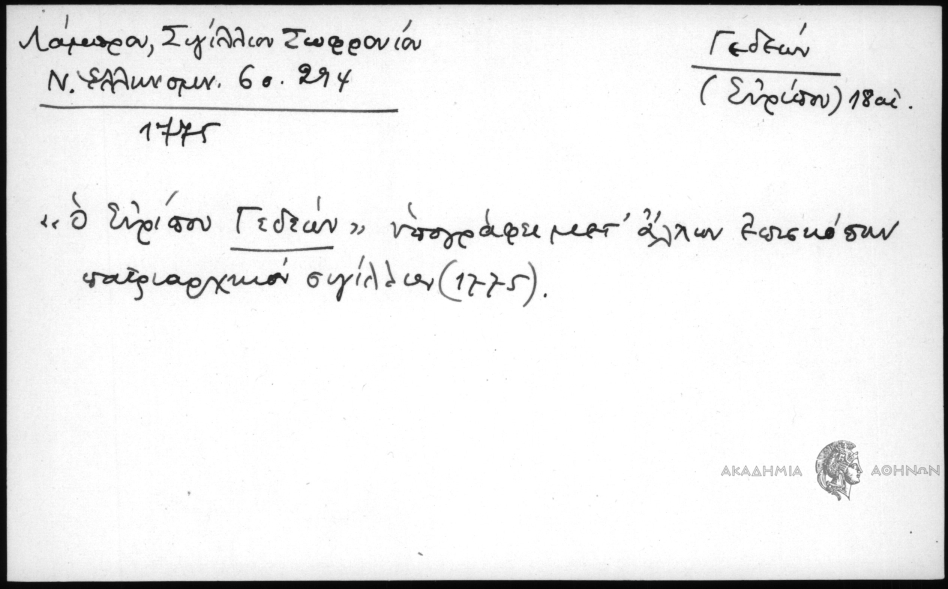 Λάμπρου, Σιγίλλιον Σωφρονίου
Ν. Ἑλληνομν. 6 σ. 294
1775
Γεδεών
(Εὐρίπου) 18 αἰ.
«ὁ Εὐρίπου Γεδεών» ὑπογράφει μετ' ἄλλων ἐπισκόπων
πατριαρχικόν σιγίλλιον (1775).
ΑΚΑΔΗΜΙΑ ΑΘΗΝΩΝ